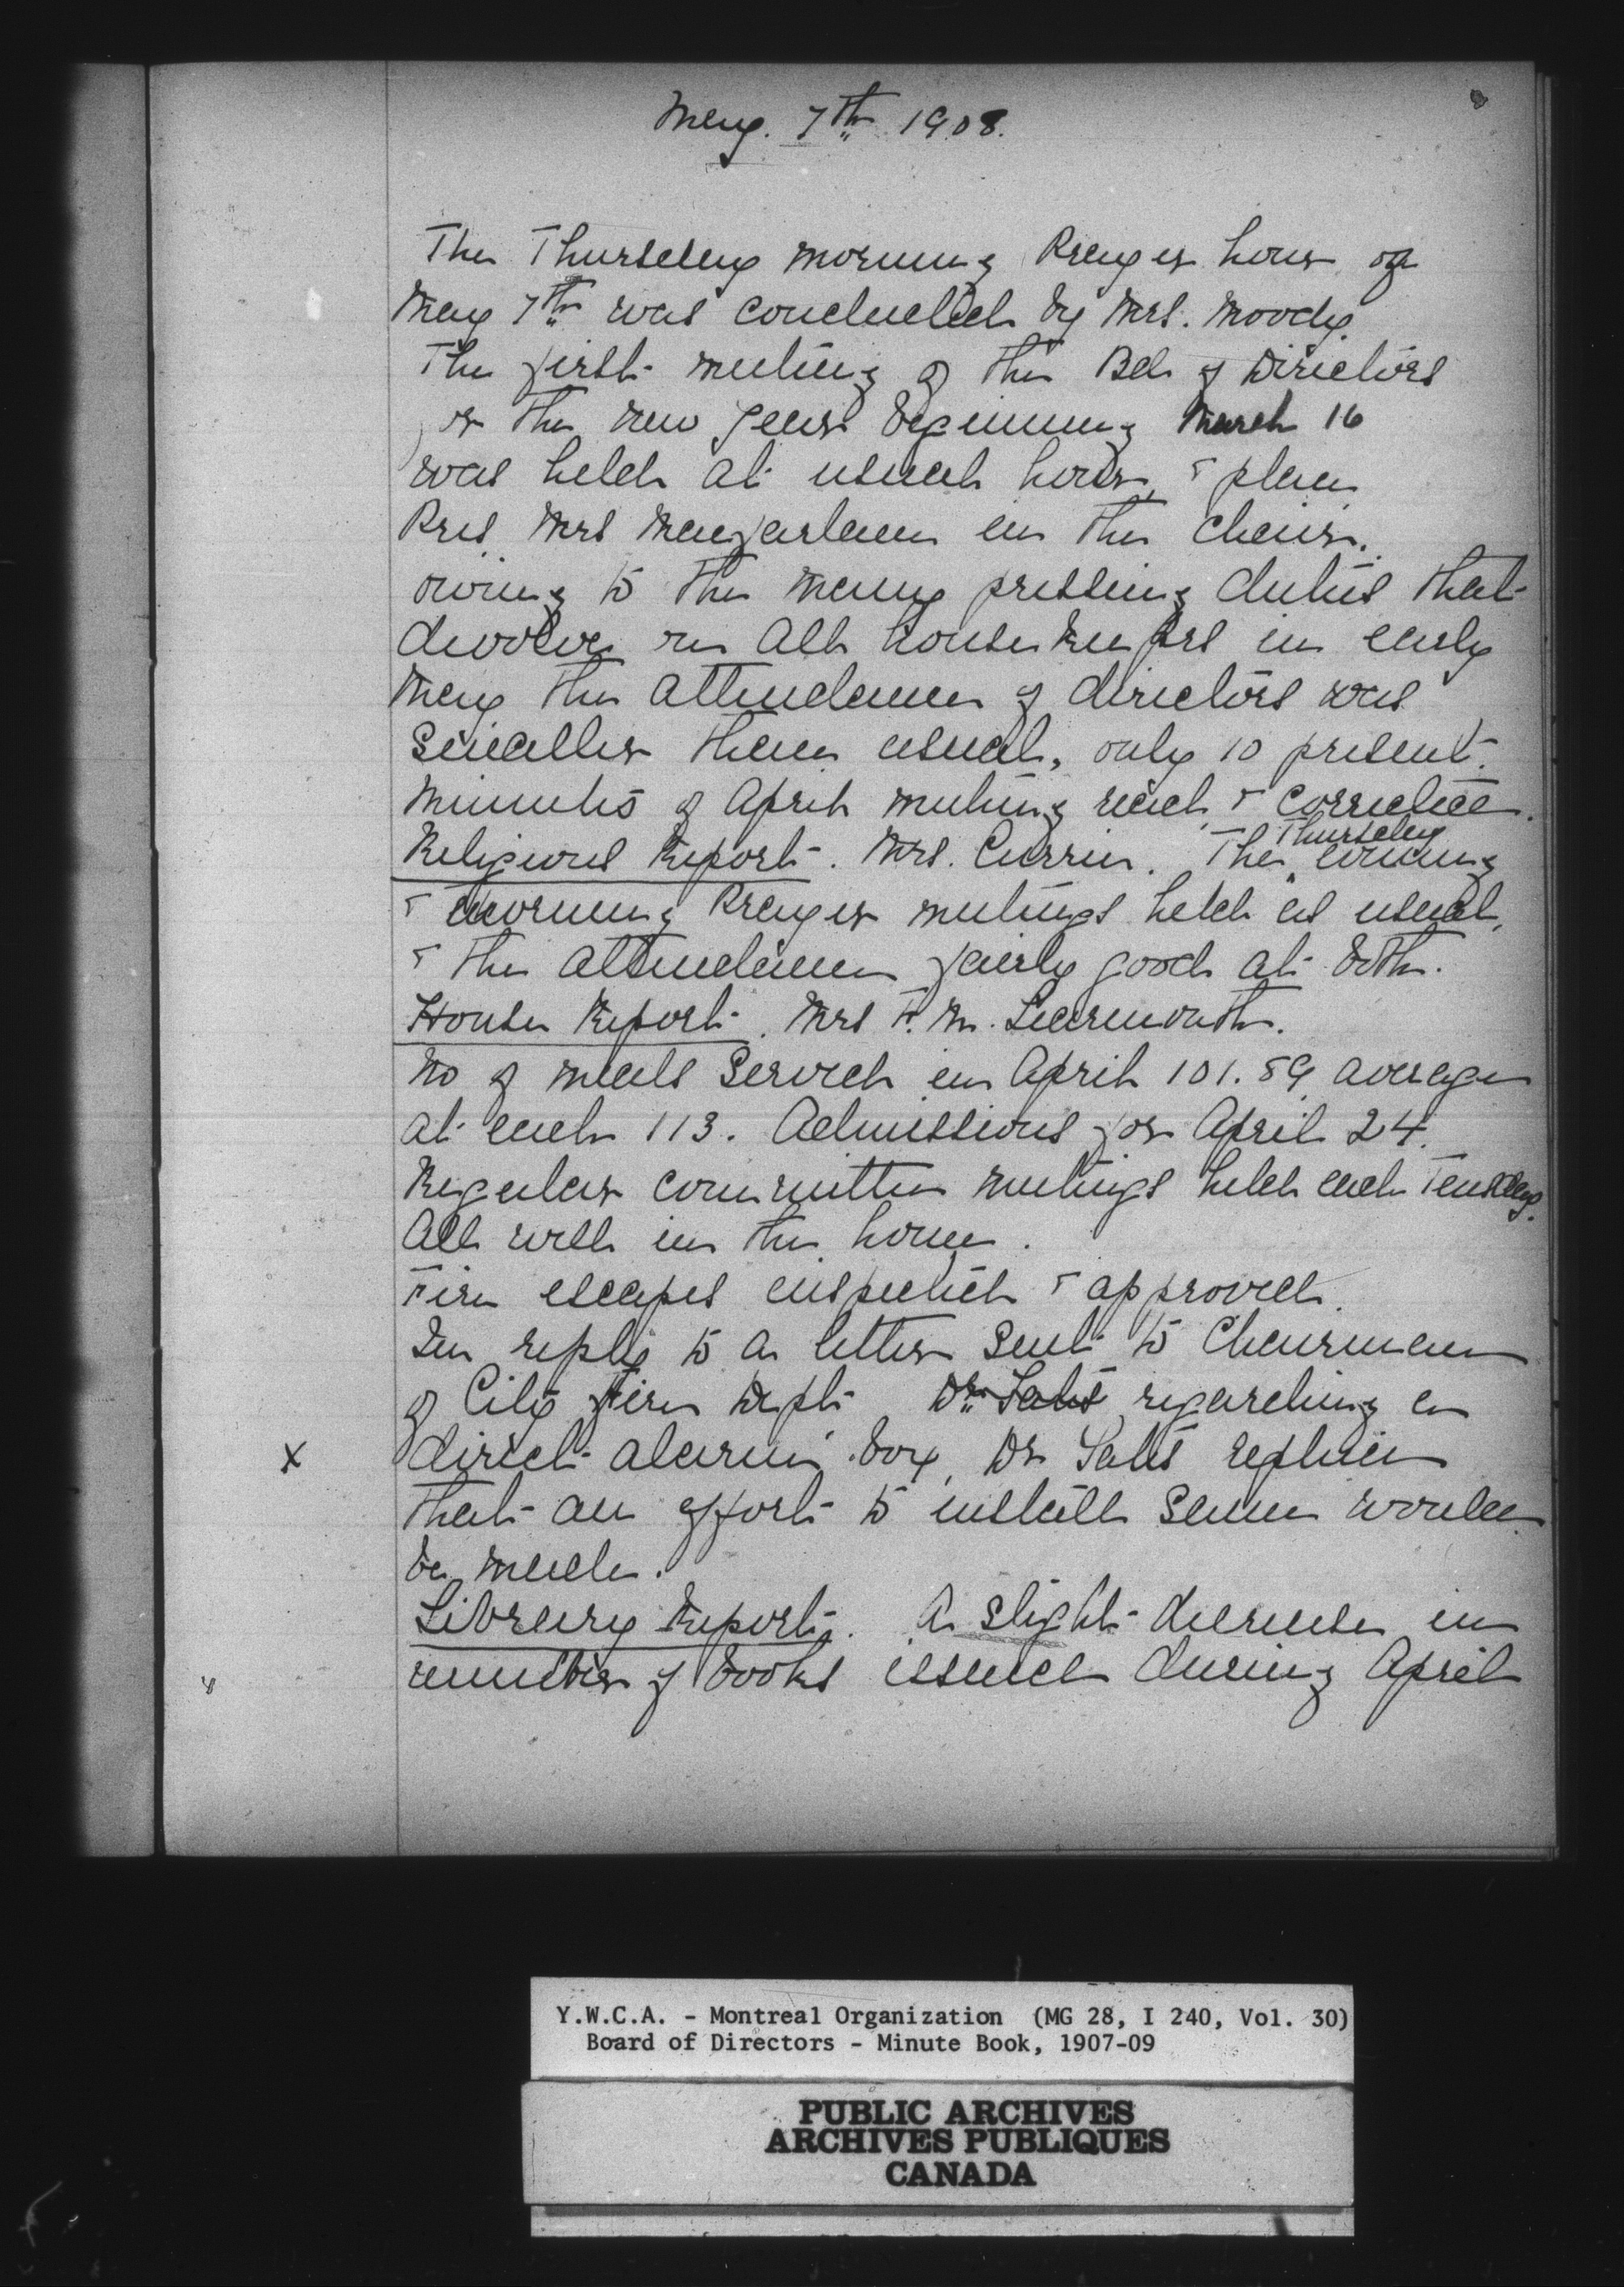 May. 7th 1908.
The Thursday morning Prayer hour of
May 7th was conducted by Mrs. Moody.
The first meeting of the Bd of Directors
for the new year beginning March 16
was held at usual hour, & place
Pres. Mrs Macfarlane in the chair.
owing to the many pressing duties that
devolve on all housekeepers in early
May the attendance of directors was
smaller than usual, only 10 present.
Minutes of April meeting read, & corrected.
Religious Report. Mrs. Currie. The Thursday evening
& morning Prayer meetings held as usual,
& the attendance fairly good at both.
House Report. Mrs F. M. Learmonth.
No of meals served in April 101.59, average
at each 113. Admissions for April 24.
Regular committee meetings held each Tuesday.
All well in the home.
Fire escapes inspected & approved.
In reply to a letter sent to Chairman
of City Fire Dept regarding a
x direct alarm box, Dr replied
that an effort to install same would
be made.
Library Report. A slight decrease in
number of books issued during April
Y.W.C.A. - Montreal Organization (MG 28, I 240, Vol. 30)
Board of Directors - Minute Book, 1907-09
PUBLIC ARCHIVES
ARCHIVES PUBLIQUES
CANADA